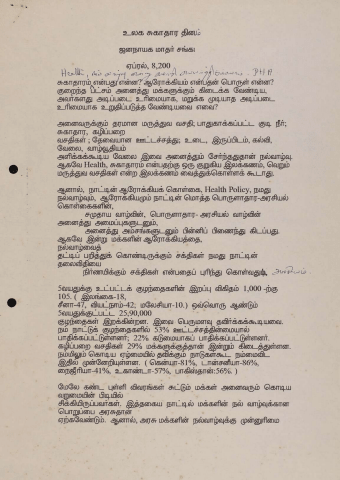 உலக சுகாதார தினம்
ஜனநாயக மாதர் சங்கம்
ஏப்ரல், 8,200
Health,
சுகாதாரம் என்பது என்ன? ஆரோக்கியம் என்பதன் பொருள் என்ன?
குறைந்த பட்சம் அனைத்து மக்களுக்கும் கிடைக்க வேண்டிய,
அவர்களது அடிப்படை உரிமையாக, மறுக்க முடியாத அடிப்படை
உரிமையாக உறுதிப்படுத்த வேண்டியவை எவை?
அனைவருக்கும் தரமான மருத்துவ வசதி; பாதுகாக்கப்பட்ட குடி நீர்;
சுகாதார, கழிப்பறை
வசதிகள் ; தேவையான ஊட்டச்சத்து; உடை, இருப்பிடம், கல்வி,
வேலை, வாழ்வூதியம்
அளிக்கக்கூடிய வேலை இவை அனைத்தும் சேர்ந்ததுதான் நல்வாழ்வு.
ஆகவே Health, சுகாதாரம் என்பதற்கு ஒரு குறுகிய இலக்கணம், வெறும்
மருத்துவ வசதிகள் என்ற இலக்கணம் வைத்துக்கொள்ளக் கூடாது.
ஆனால், நாட்டின் ஆரோக்கியக் கொள்கை, Health Policy, நமது
நல்வாழ்வும், ஆரோக்கியமும் நாட்டின் மொத்த பொருளாதார-அரசியல்
கொள்கைகளின்,
சமுதாய வாழ்வின், பொருளாதார- அரசியல் வாழ்வின்
அனைத்து அமைப்புகளுடனும்,
அனைத்து அம்சங்களுடனும் பின்னிப் பிணைந்து கிடப்பது.
ஆகவே இன்று மக்களின் ஆரோக்கியத்தை,
நல்வாழ்வைத்
தட்டிப் பறித்துக் கொண்டிருக்கும் சக்திகள் நமது நாட்டின்
தலைவிதியை
நிர்ணயிக்கும் சக்திகள் என்பதைப் புரிந்து கொள்வது
5வயதுக்கு உட்பட்டக் குழந்தைகளின் இறப்பு விகிதம் 1,000 -க்கு
105. ( இலங்கை-18,
சீனா-47, வியட்நாம்-42, மலேசியா-10.) ஒவ்வொரு ஆண்டும்
5வயதுக்குட்பட்ட 25,90,000
குழந்தைகள் இறக்கின்றன. இவை பெருமளவு தவிர்க்கக்கூடியவை.
நம் நாட்டுக் குழந்தைகளில் 53% ஊட்டச்சத்தின்மையால்
பாதிக்கப்பட்டுள்ளனர்; 22% கடுமையாகப் பாதிக்கப்பட்டுள்ளனர்.
கழிப்பறை வசதிகள் 29% மக்களுக்குத்தான் இன்றும் கிடைத்துள்ளன.
நம்மிலும் கொடிய ஏழ்மையில் தவிக்கும் நாடுகளூட நம்மைவிட
இதில் முன்னேறியுள்ளன. ( கென்யா-81%, டான்சனியா-86%,
நைஜீரியா-41%, உகாண்டா-57%, பாகிஸ்தான்:56%. )
மேலே கண்ட புள்ளி விவரங்கள் சுட்டும் மக்கள் அனைவரும் கொடிய
வறுமையின் பிடியில்
சிக்கியிருப்பவர்கள். இத்தகைய நாட்டில் மக்களின் நல் வாழ்வுக்கான
பொறுப்பை அரசுதான்
ஏற்கவேண்டும். ஆனால், அரசு மக்களின் நல்வாழ்வுக்கு முன்னுரிமை